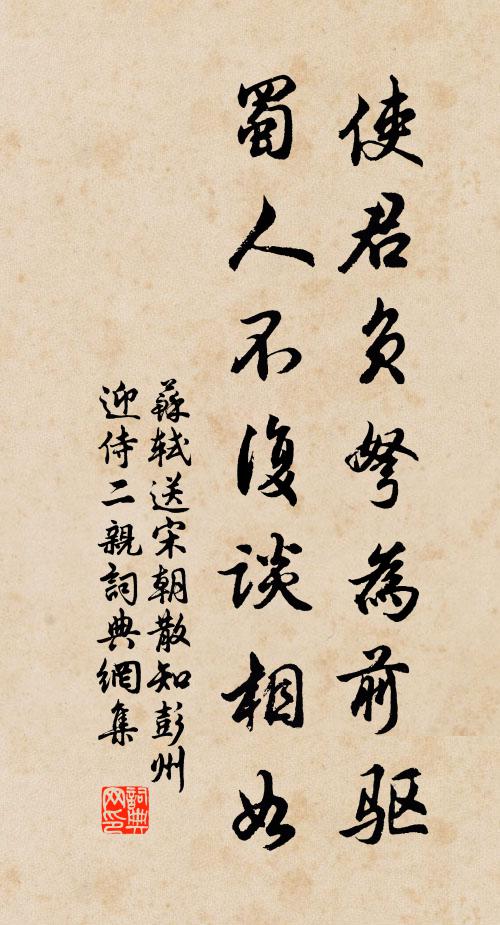 使君負弩為前驱
蜀人不復談相如
蘇軾送宋朝散知彭州
迎侍二親詞典網集
詞典
网印